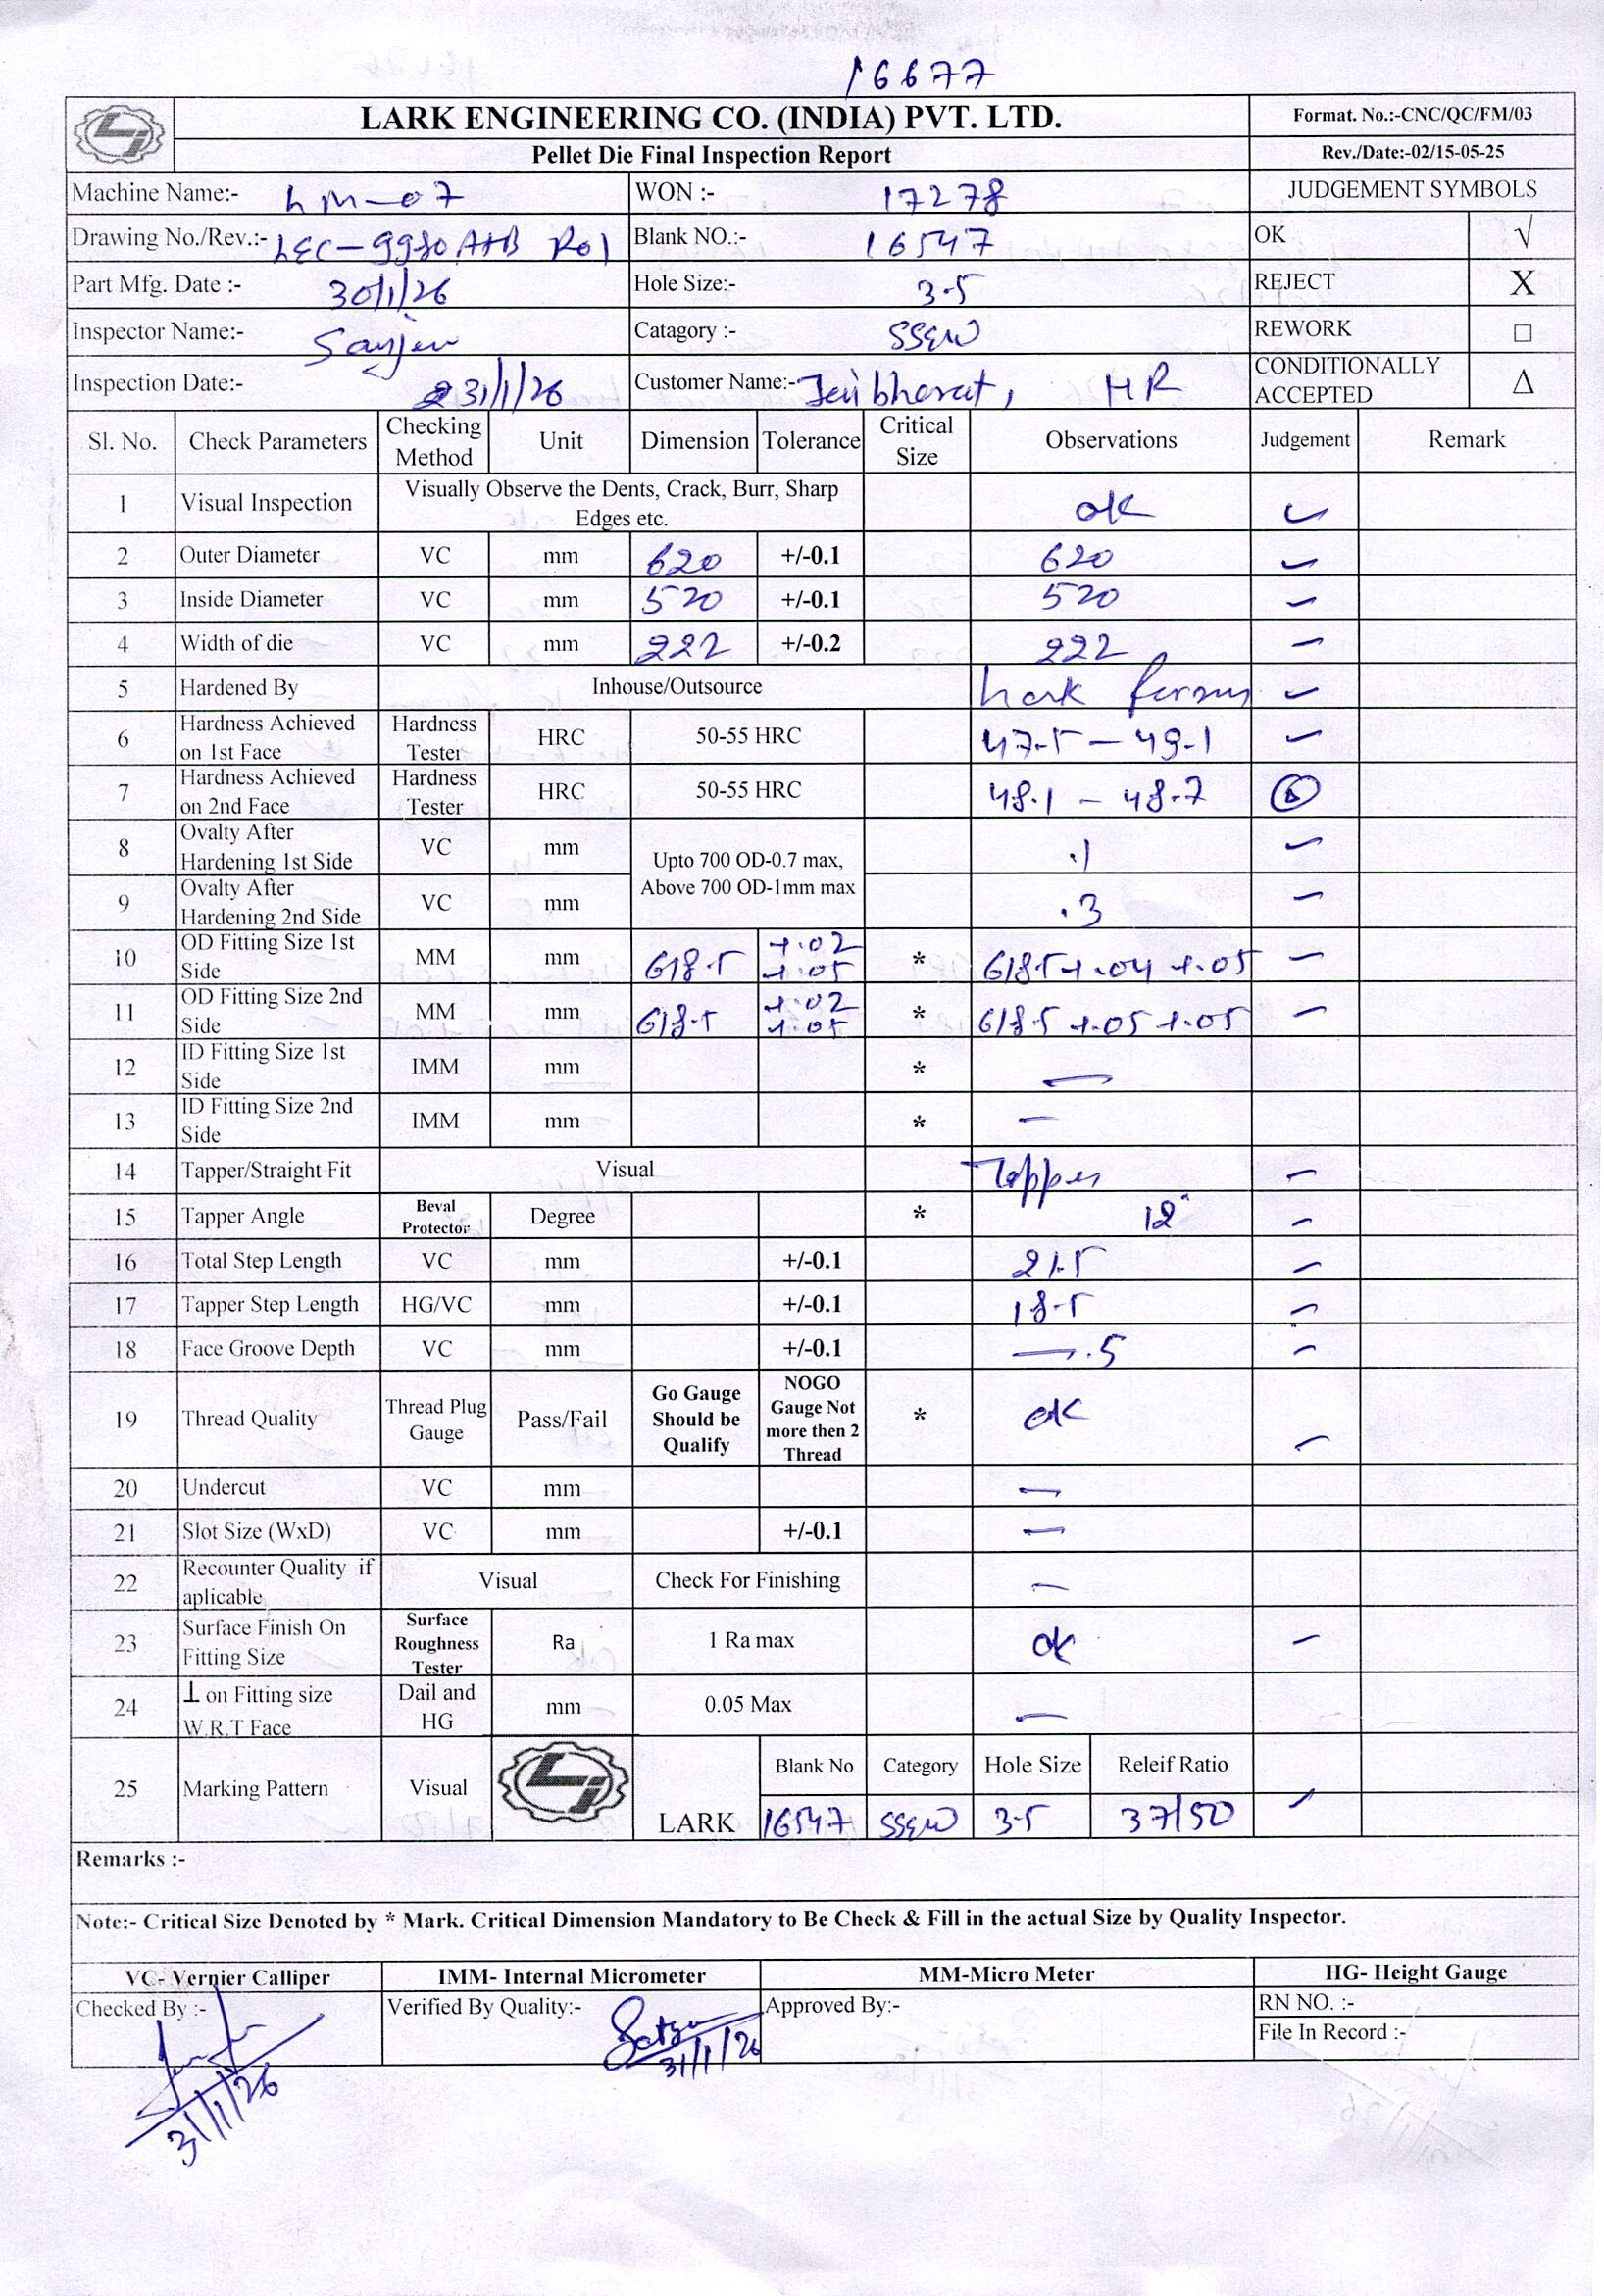 16677
LARK ENGINEERING CO. (INDIA) PVT. LTD.
Format. No.:-CNC/QC/FM/03
Pellet Die Final Inspection Report
Rev./Date:-02/15-05-25
Machine Name:- LM-07 WON :- 17278 JUDGEMENT SYMBOLS
Drawing No./Rev.:- LEC-9980 A+B R01 Blank NO.:- 16547 OK √
Part Mfg. Date :- 30/1/26 Hole Size:- 3.5 REJECT X
Inspector Name:- Catagory :- SSEW REWORK □
Inspection Date:- 31/1/26 Customer Name:- Jai bharat, HR CONDITIONALLY ACCEPTED Δ
Sl. No. Check Parameters Checking Method Unit Dimension Tolerance Critical Size Observations Judgement Remark
1 Visual Inspection Visually Observe the Dents, Crack, Burr, Sharp Edges etc. ok ✓
2 Outer Diameter VC mm 620 +/-0.1 620 ✓
3 Inside Diameter VC mm 520 +/-0.1 520 ✓
4 Width of die VC mm 222 +/-0.2 222 ✓
5 Hardened By Inhouse/Outsource Lark ✓
6 Hardness Achieved on 1st Face Hardness Tester HRC 50-55 HRC 47.5 - 49.1 ✓
7 Hardness Achieved on 2nd Face Hardness Tester HRC 50-55 HRC 48.1 - 48.7
8 Ovalty After Hardening 1st Side VC mm Upto 700 OD-0.7 max, Above 700 OD-1mm max .1 ✓
9 Ovalty After Hardening 2nd Side VC mm .3 ✓
10 OD Fitting Size 1st Side MM mm 618.5 +.02 +.05 * 618.5 +.04 +.05 ✓
11 OD Fitting Size 2nd Side MM mm 618.5 +.02 +.05 * 618.5 +.05 +.05 ✓
12 ID Fitting Size 1st Side IMM mm * —
13 ID Fitting Size 2nd Side IMM mm * —
14 Tapper/Straight Fit Visual Tapper ✓
15 Tapper Angle Beval Protector Degree * 12° ✓
16 Total Step Length VC mm +/-0.1 21.5 ✓
17 Tapper Step Length HG/VC mm +/-0.1 18.5 ✓
18 Face Groove Depth VC mm +/-0.1 — .5 ✓
19 Thread Quality Thread Plug Gauge Pass/Fail Go Gauge Should be Qualify NOGO Gauge Not more then 2 Thread * ok ✓
20 Undercut VC mm —
21 Slot Size (WxD) VC mm +/-0.1 —
22 Recounter Quality if aplicable Visual Check For Finishing —
23 Surface Finish On Fitting Size Surface Roughness Tester Ra 1 Ra max ok ✓
24 ⊥ on Fitting size W.R.T Face Dail and HG mm 0.05 Max —
25 Marking Pattern Visual LARK Blank No Category Hole Size Releif Ratio
16547 SSEW 3.5 37/50 ✓
Remarks :-
Note:- Critical Size Denoted by * Mark. Critical Dimension Mandatory to Be Check & Fill in the actual Size by Quality Inspector.
VC- Vernier Calliper IMM- Internal Micrometer MM-Micro Meter HG- Height Gauge
Checked By :- Verified By Quality:- Approved By:- RN NO. :-
File In Record :-
31/1/26
31/1/26